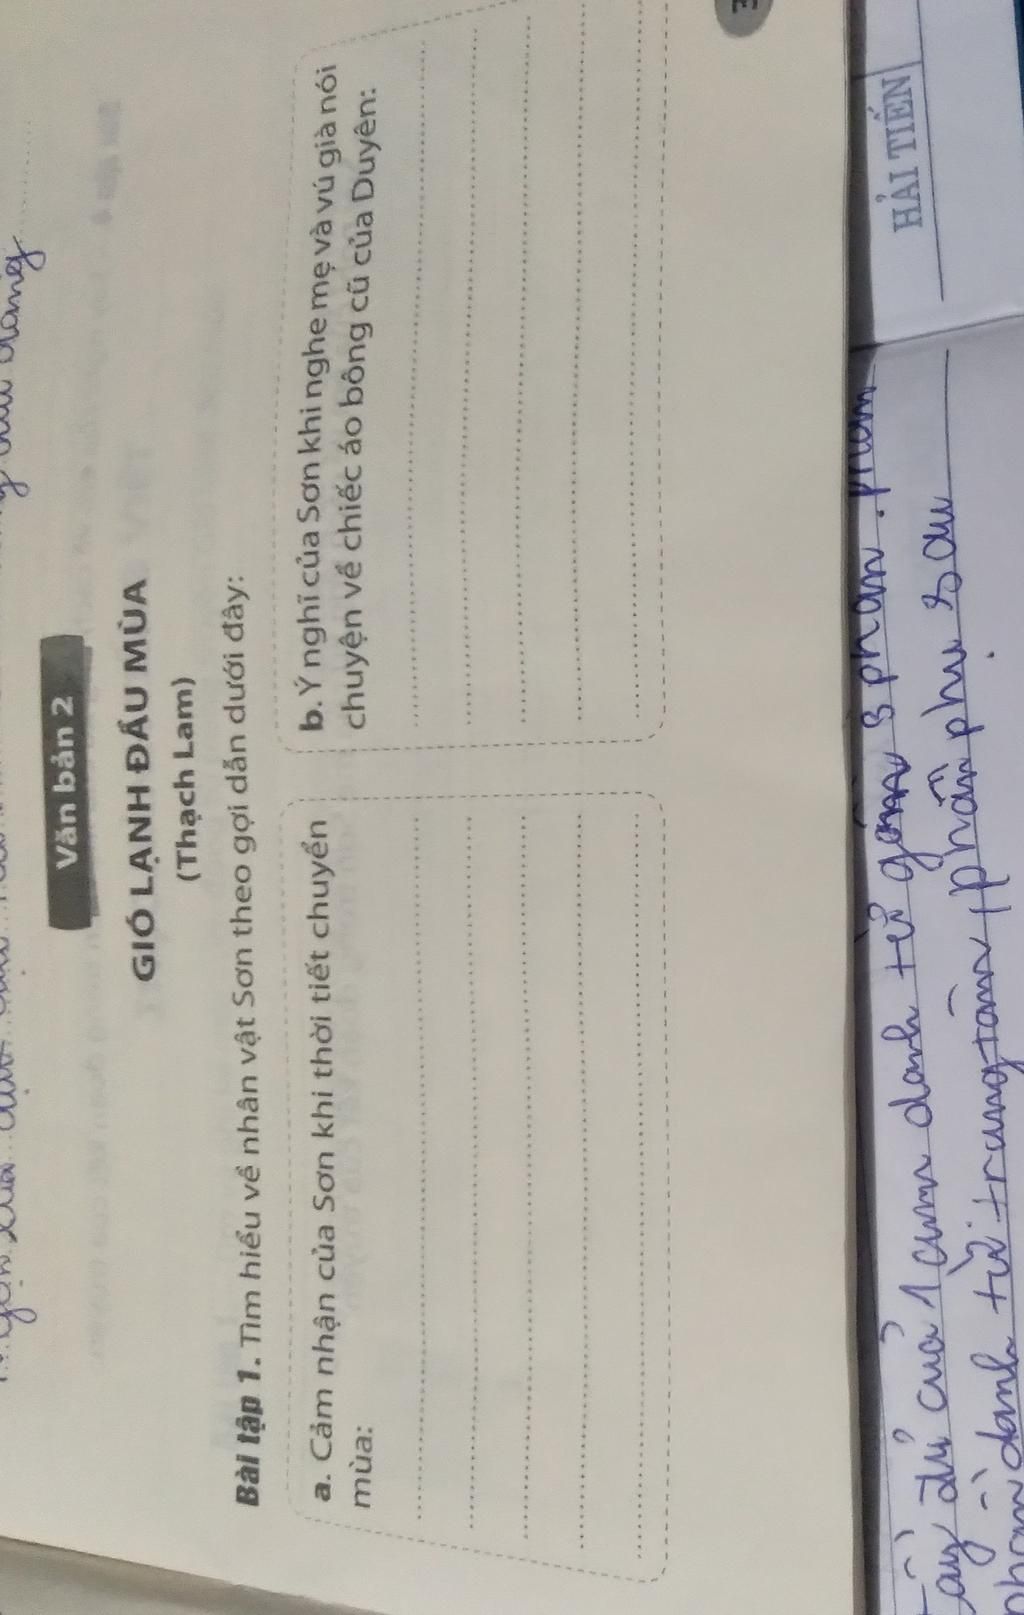 Văn bản 2
GIÓ LẠNH ĐẦU MÙA
(Thạch Lam)
Bài tập 1. Tìm hiểu về nhân vật Sơn theo gợi dẫn dưới đây:
a. Cảm nhận của Sơn khi thời tiết chuyển
mùa:
b. Ý nghĩ của Sơn khi nghe mẹ và vú già nói
chuyện về chiếc áo bông cũ của Duyên:
HẢI TIẾN
đủ của 1 cụm danh từ gồm 3 phần. phần
danh từ trung tâm, phần phụ sau